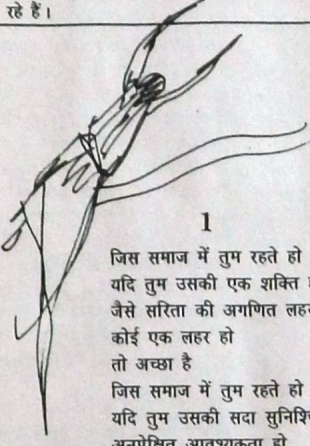 रहे हैं।
1
जिस समाज में तुम रहते हो
यदि तुम उसकी एक शक्ति
जैसे सरिता की अगणित
कोई एक लहर हो
तो अच्छा है
जिस समाज में तुम रहते हो
यदि तुम उसकी सदा